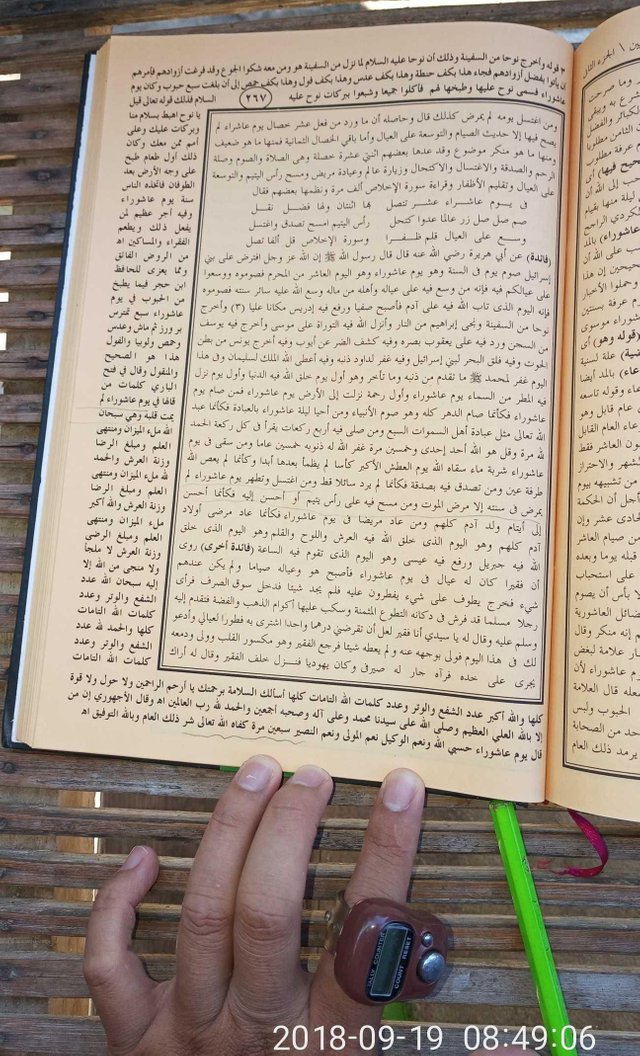 ٣ قوله وأخرج نوحا من السفينة وذلك أن نوحا عليه السلام لما نزل من السفينة هو ومن معه شكوا الجوع وقد فرغت أزوادهم فأمرهم
أن يأتوا بفضل أزوادهم فجاء هذا بكف حنطة وهذا بكف عدس وهذا بكف فول وهذا بكف حمص إلى أن بلغت سبع حبوب وكان يوم
عاشوراء فسمى نوح عليها وطبخها لهم فأكلوا جميعا وشبعوا ببركات نوح عليه
السلام فذلك قوله تعالى قيل
٢٦٧
يا نوح اهبط بسلام منا
وبركات عليك وعلى
أمم ممن معك وكان
ذلك أول طعام طبخ
على وجه الأرض بعد
الطوفان فاتخذه الناس
سنة يوم عاشوراء
وفيه أجر عظيم لمن
يفعل ذلك ويطعم
الفقراء والمساكين اه
من الروض الفائق
ومما يعزى للحافظ
ابن حجر فيما يطبخ
من الحبوب في يوم
عاشوراء سبع تهترس
بر ورز ثم ماش وعدس
وحمص ولوبيا والفول
هذا هو الصحيح
والمنقول وقال في فتح
الباري كلمات من
قالها في يوم عاشوراء لم
يمت قلبه وهي سبحان
الله ملء الميزان ومنتهى
العلم ومبلغ الرضا
وزنة العرش والحمد
لله ملء الميزان ومنتهى
العلم ومبلغ الرضا
وزنة العرش والله أكبر
ملء الميزان ومنتهى
العلم ومبلغ الرضى
وزنة العرش لا ملجأ
ولا منجى من الله إلا
إليه سبحان الله عدد
الشفع والوتر وعدد
كلمات الله التامات
كلها والحمد لله عدد
الشفع والوتر وعدد
كلمات الله التامات
ومن اغتسل يومه لم يمرض كذلك قال وحاصله أن ما ورد من فعل عشر خصال يوم عاشوراء لم
يصح فيها إلا حديث الصيام والتوسعة على العيال وأما باقي الخصال الثمانية فمنها ما هو ضعيف
ومنها ما هو منكر موضوع وقد عدها بعضهم اثنتي عشرة خصلة وهي الصلاة والصوم وصلة
الرحم والصدقة والاغتسال والاكتحال وزيارة عالم وعيادة مريض ومسح رأس اليتيم والتوسعة
على العيال وتقليم الأظفار وقراءة سورة الإخلاص ألف مرة ونظمها بعضهم فقال
في يوم عاشوراء عشر تتصل بها اثنتان ولها فضل نقل
صم صل صل زر عالما عد واكتحل رأس اليتيم امسح تصدق واغتسل
وسع على العيال قلم ظفرا وسورة الإخلاص قل ألفا تصل
(فائدة) عن أبي هريرة رضي الله عنه قال قال رسول الله ﷺ إن الله عز وجل افترض على بني
إسرائيل صوم يوم في السنة وهو يوم عاشوراء وهو اليوم العاشر من المحرم فصوموه ووسعوا
على عيالكم فيه فإنه من وسع فيه على عياله وأهله من ماله وسع الله عليه سائر سنته فصوموه
فإنه اليوم الذي تاب الله فيه على آدم فأصبح صفيا ورفع فيه إدريس مكانا عليا (٣) وأخرج
نوحا من السفينة ونجى إبراهيم من النار وأنزل الله فيه التوراة على موسى وأخرج فيه يوسف
من السجن ورد فيه على يعقوب بصره وفيه كشف الضر عن أيوب وفيه أخرج يونس من بطن
الحوت وفيه فلق البحر لبني إسرائيل وفيه غفر لداود ذنبه وفيه أعطى الله الملك لسليمان وفي هذا
اليوم غفر لمحمد ﷺ ما تقدم من ذنبه وما تأخر وهو أول يوم خلق الله فيه الدنيا وأول يوم نزل
فيه المطر من السماء يوم عاشوراء وأول رحمة نزلت إلى الأرض يوم عاشوراء فمن صام يوم
عاشوراء فكأنما صام الدهر كله وهو صوم الأنبياء ومن أحيا ليلة عاشوراء بالعبادة فكأنما عبد
الله تعالى مثل عبادة أهل السموات السبع ومن صلى فيه أربع ركعات يقرأ في كل ركعة الحمد
لله مرة وقل هو الله أحد إحدى وخمسين مرة غفر الله له ذنوبه خمسين عاما ومن سقى في يوم
عاشوراء شربة ماء سقاه الله يوم العطش الأكبر كأسا لم يظمأ بعدها أبدا وكأنما لم يعص الله
طرفة عين ومن تصدق فيه بصدقة فكأنما لم يرد سائلا قط ومن اغتسل وتطهر يوم عاشوراء لم
يمرض في سنته إلا مرض الموت ومن مسح فيه على رأس يتيم أو أحسن إليه فكأنما أحسن
إلى أيتام ولد آدم كلهم ومن عاد مريضا في يوم عاشوراء فكأنما عاد مرضى أولاد
آدم كلهم وهو اليوم الذي خلق الله فيه العرش واللوح والقلم وهو اليوم الذي خلق
الله فيه جبريل ورفع فيه عيسى وهو اليوم الذي تقوم فيه الساعة (فائدة أخرى) روى
أن فقيرا كان له عيال في يوم عاشوراء فأصبح هو وعياله صياما ولم يكن عندهم
شيء فخرج يطوف على شيء يفطرون عليه فلم يجد شيئا فدخل سوق الصرف فرأى
رجلا مسلما قد فرش في دكانه النطوع المثمنة وسكب عليها أكوام الذهب والفضة فتقدم إليه
وسلم عليه وقال له يا سيدي أنا فقير لعل أن تقرضني درهما واحدا أشترى به فطورا لعيالي وأدعو
لك في هذا اليوم فولى بوجهه عنه ولم يعطه شيئا فرجع الفقير وهو مكسور القلب وولى ودمعه
يجرى على خده فرآه جار له صيرفي وكان يهوديا فنزل خلف الفقير وقال له أراك
كلها والله أكبر عدد الشفع والوتر وعدد كلمات الله التامات كلها أسألك السلامة برحمتك يا أرحم الراحمين ولا حول ولا قوة
إلا بالله العلي العظيم وصلى الله على سيدنا محمد وعلى آله وصحبه أجمعين والحمد لله رب العالمين اه وقال الأجهوري إن من
قال يوم عاشوراء حسبي الله ونعم الوكيل نعم المولى ونعم النصير سبعين مرة كفاه الله تعالى شر ذلك العام وبالله التوفيق اه
TALLY COUNTER
COUNT RESET
2018-09-19 08:49:06